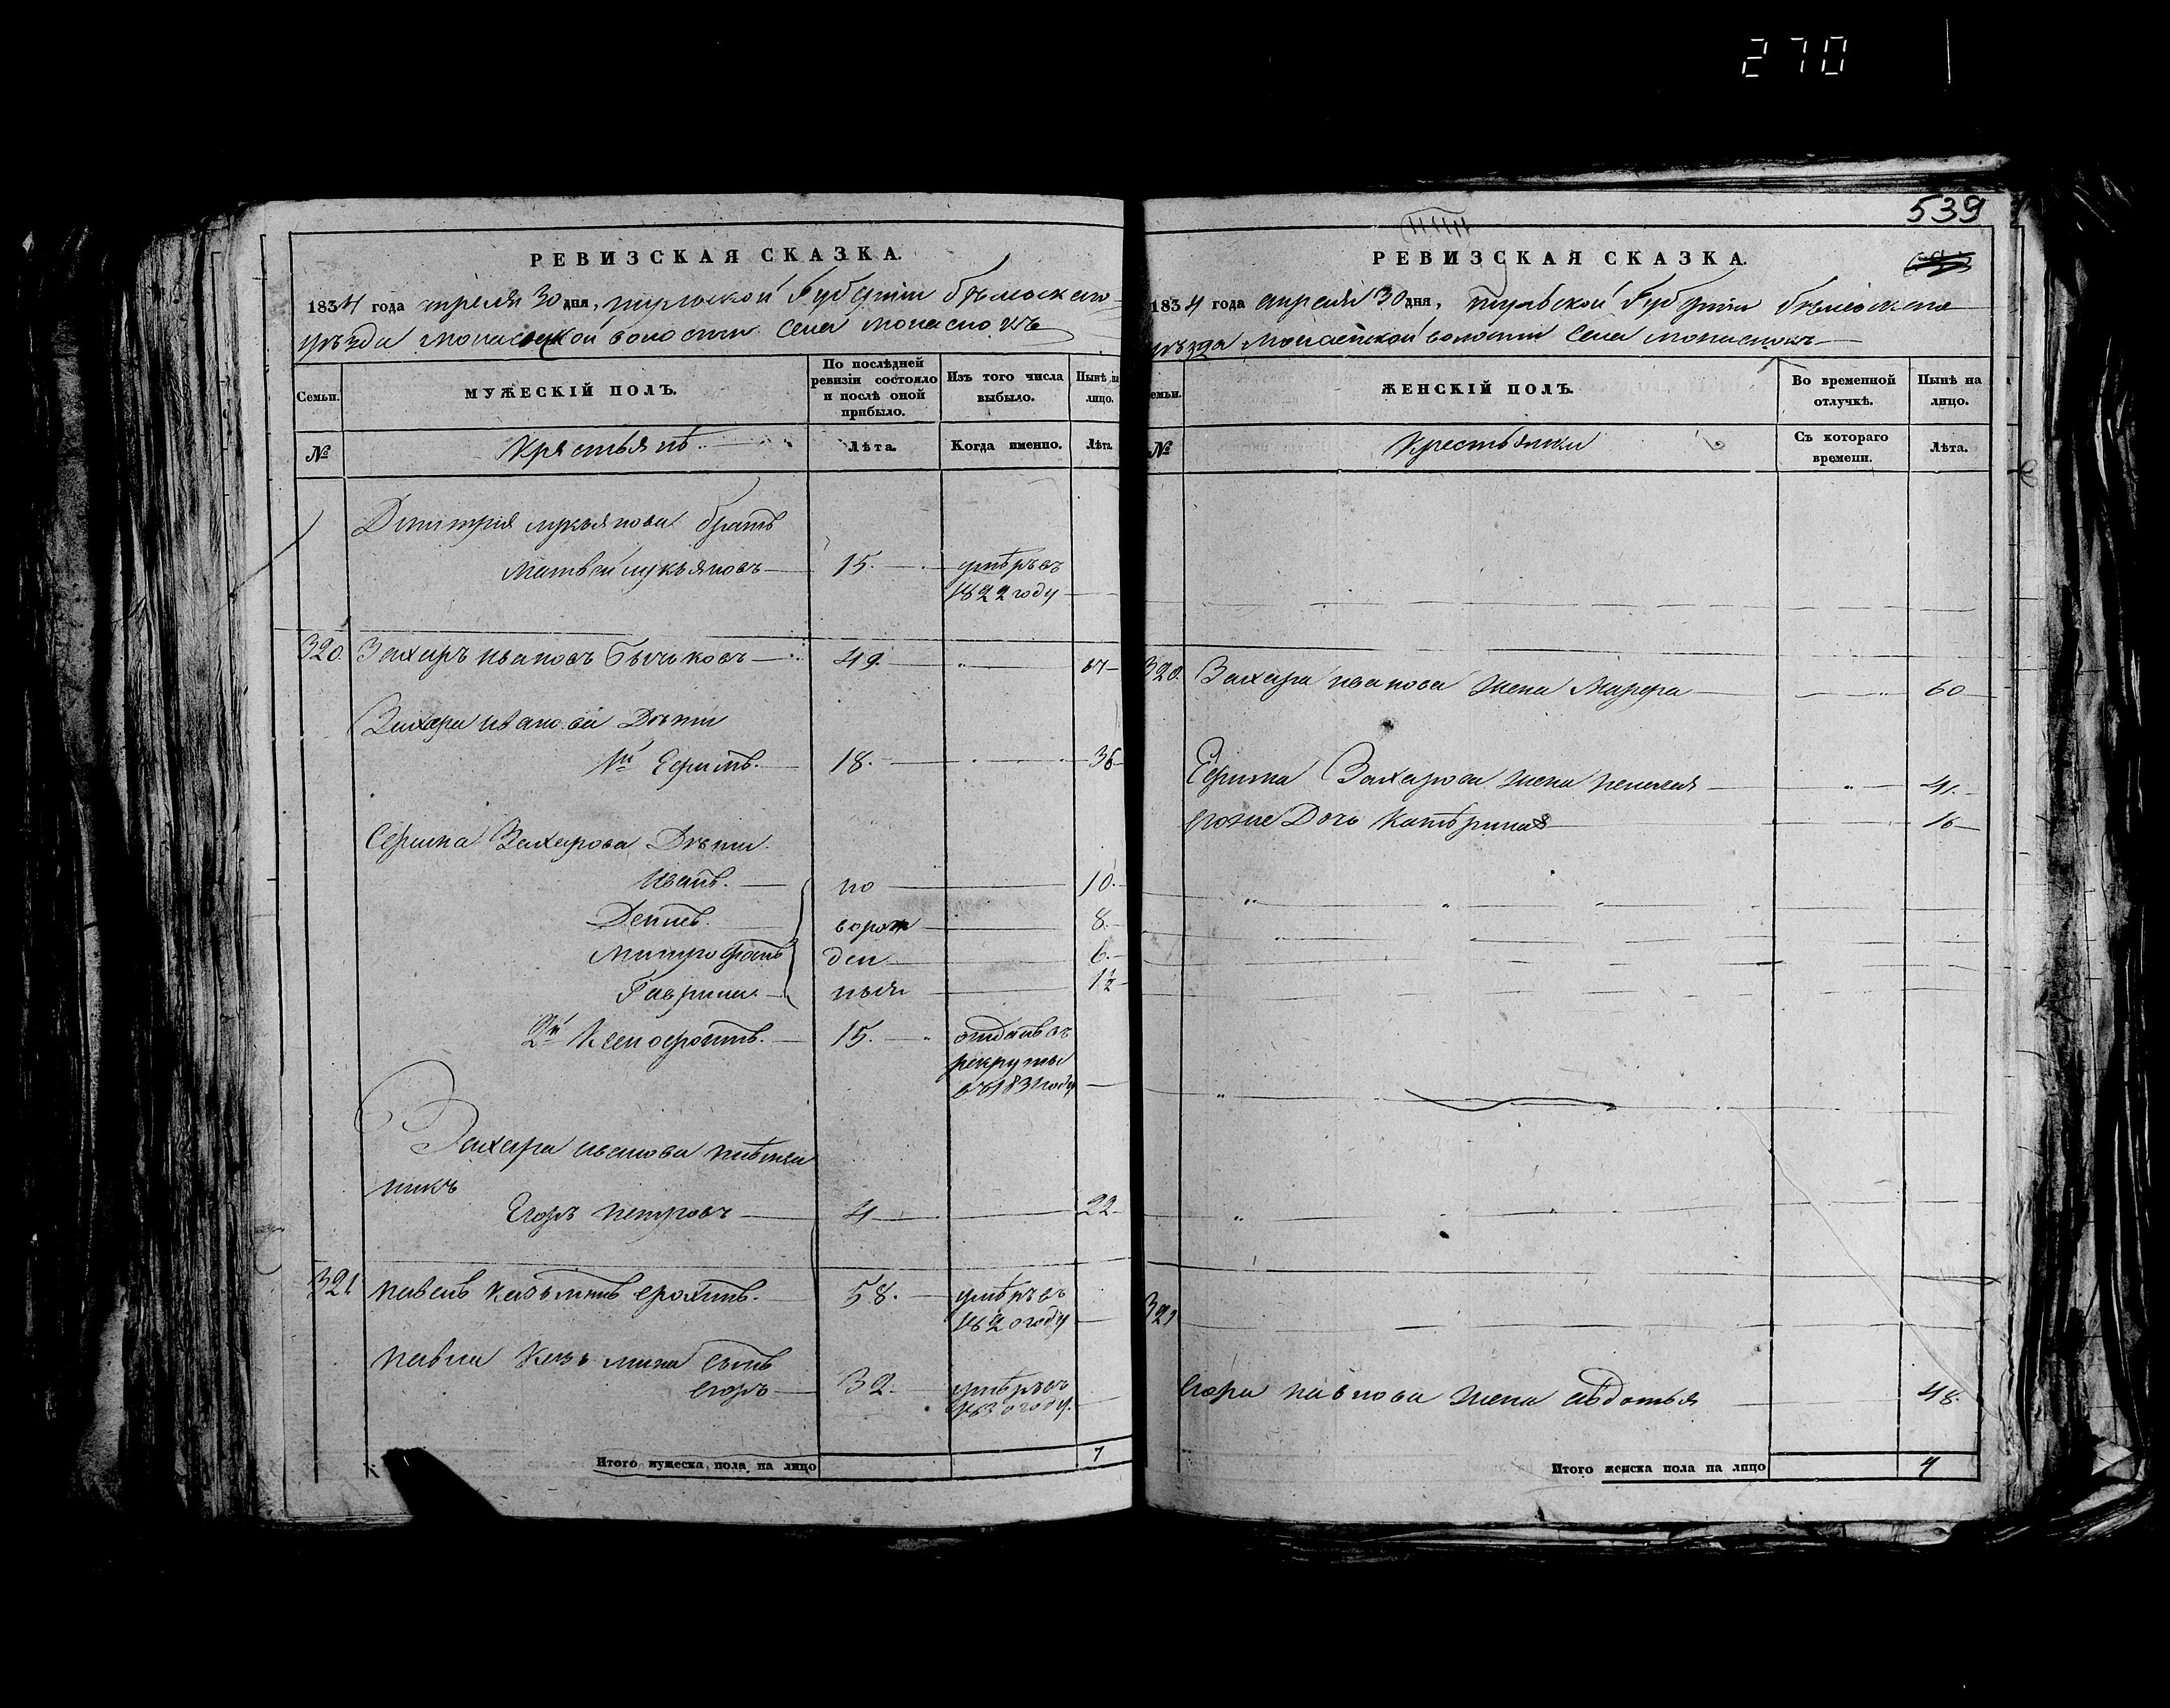 270
РЕВИЗСКАЯ СКАЗКА.
1834 года апреля 30 дня, тульской Губернiи бѣлевскаго
уѣзда Монаенской волости Села Монаенокъ
Семьи.
МУЖЕСКIЙ ПОЛЪ.
По послѣдней ревизiи состояло и послѣ оной прибыло.
Изъ того числа выбыло.
Нынѣ на лицо.
№
Крестьянѣ
Лѣта.
Когда именно.
Лѣта.
Дмитрiя лукьянова братъ
Матвей лукьяновъ 15. умѣръ въ
1822 году
320. Захаръ ивановъ Бычковъ 49. 67
Захара иванова Дѣти
1й Ефимъ. 18. 36
Ефима Захарова Дѣти.
Иванъ. но 10.
Денисъ. ворож 8.
Митрофанъ ден 6.
Гаврила. ныя 1½
2й Ксенофонтъ. 15. отданъ въ
рекруты
въ 1831 году
Захара иванова племян
никъ
Егоръ петровъ 4 22
321 павелъ козьминъ ерохинъ. 58. умѣръ въ
1820 году
павла козьмина сынъ
егоръ 32. умѣръ въ
1830 году.
Итого мужеска пола на лицо 7
539
РЕВИЗСКАЯ СКАЗКА.
1834 года апреля 30 дня, тульской Губернiи бѣлевскаго
уѣзда Монаенской волости Села монаенокъ
Семьи.
ЖЕНСКIЙ ПОЛЪ.
Во временной отлучкѣ.
Нынѣ на лицо.
№
Крестьянки
Съ котораго времени.
Лѣта.
320. Захара иванова жена Марфа 60
Ефима Захарова жена пелагея 41.
егоже Дочь Катѣрина 16
321
егора павлова жена авдотья 48.
Итого женска пола на лицо 4